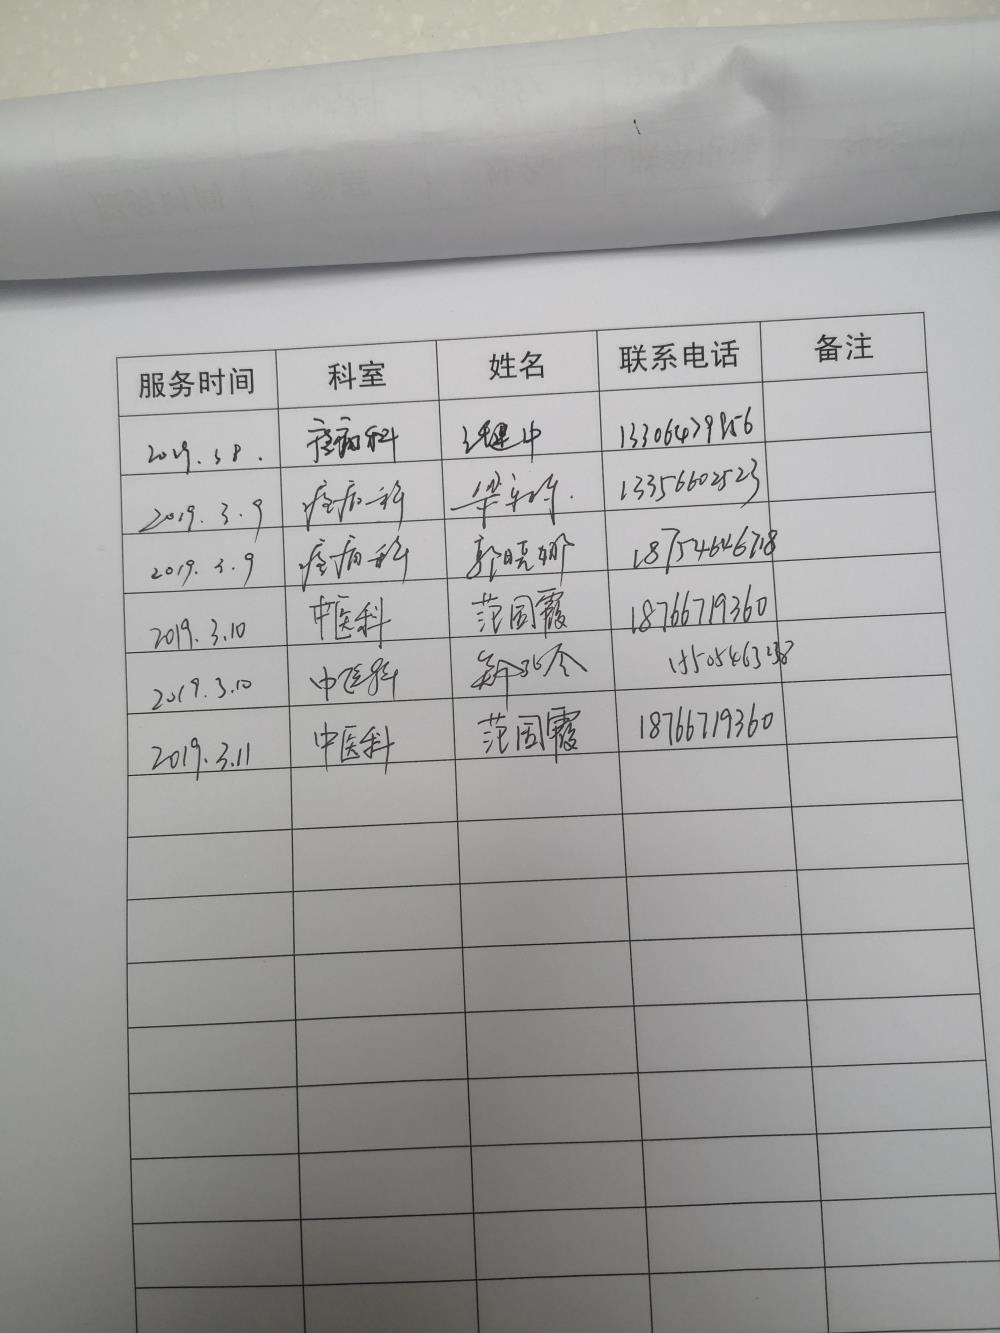 服务时间 科室 姓名 联系电话 备注
2019.3.8. 疼痛科 健中
2019.3.9 疼痛科 13356602523
2019.3.9 疼痛科 郭晓娜 18754646718
2019.3.10 中医科 范国霞 18766719360
2019.3.10 中医科 郭
2019.3.11 中医科 范国霞 18766719360